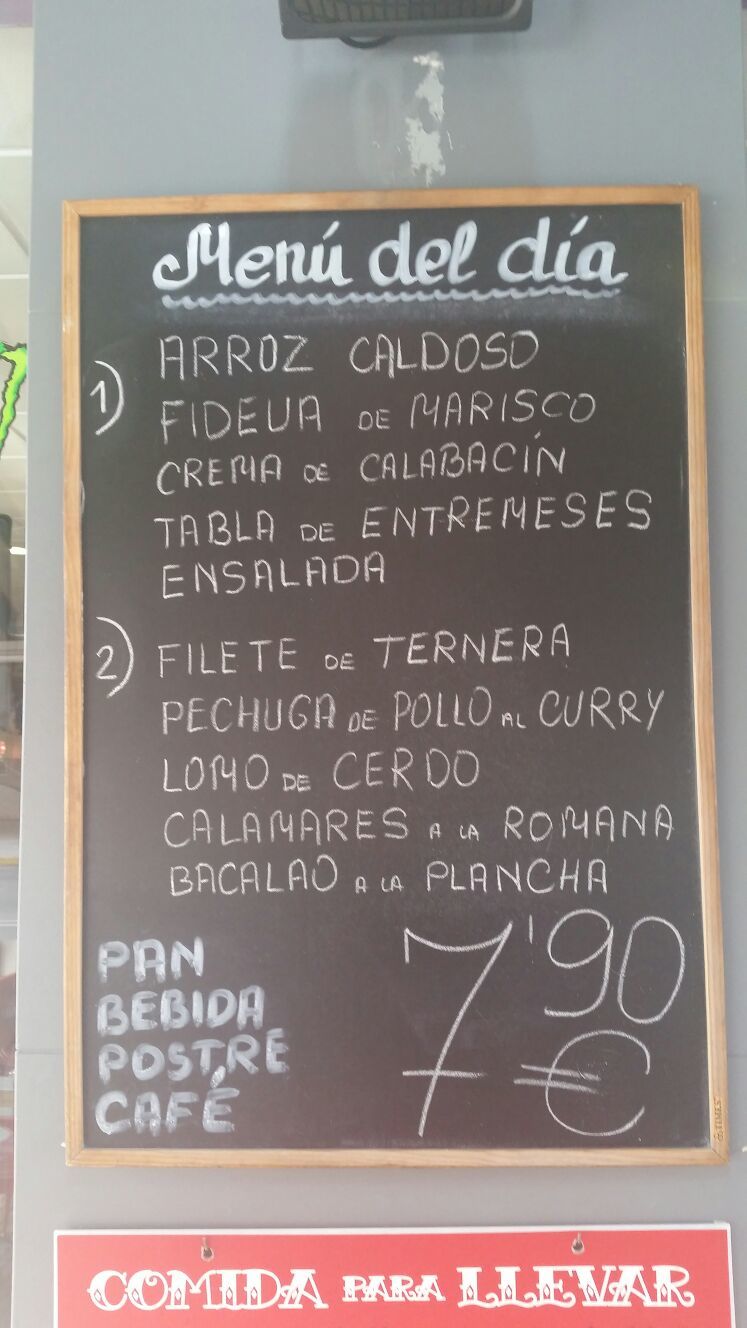 Menú del día
1) ARROZ CALDOSO
FIDEUA DE MARISCO
CREMA DE CALABACÍN
TABLA DE ENTREMESES
ENSALADA
2) FILETE DE TERNERA
PECHUGA DE POLLO AL CURRY
LOMO DE CERDO
CALAMARES A LA ROMANA
BACALAO A LA PLANCHA
PAN
BEBIDA
POSTRE
CAFÉ
7'90
€
COMIDA PARA LLEVAR